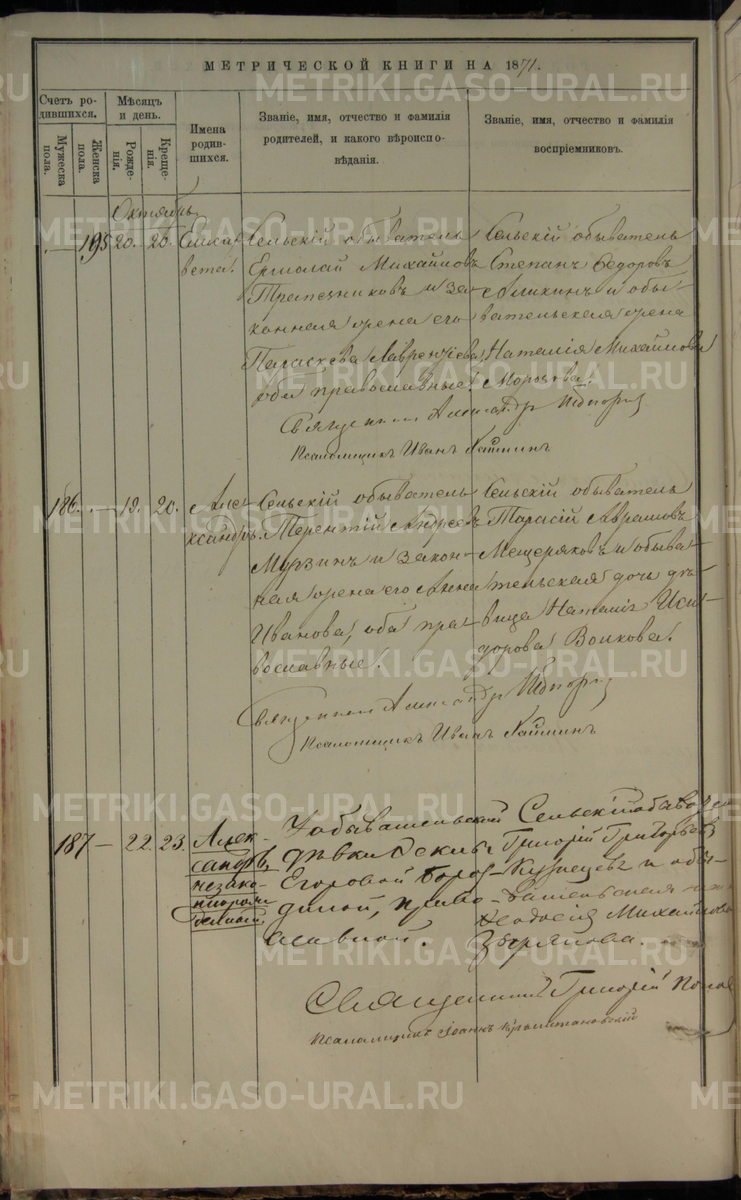 МЕТРИЧЕСКОЙ КНИГИ НА 1871.
Счетъ ро-
дившихся.
Мужеска
пола.
Женска
пола.
Мѣсяцъ
и день.
Рожде-
нія.
Креще-
нія.
Имена
родив-
шихся.
Званіе, имя, отчество и фамилія
родителей, и какого вѣроиспо-
вѣданія.
Званіе, имя, отчество и фамилія
воспріемниковъ.
Октябрь
195 20. 20. Елиса-
вета.
Сельскій обыватель
Ермолай Михайловъ
Трапезниковъ и за-
конная жена его
Параскева Лаврентіева,
оба православные.
Сельскій обыватель
Степанъ Ѳедоровъ
и обы-
вательская жена
Наталія Михайлова
Морозова.
Священникъ Александръ
Псаломщикъ Иванъ
186. — 19. 20. Алек-
ксандръ.
Сельскій обыватель
Терентій Андреевъ
Мурзинъ и закон-
ная жена его Анна
Иванова, оба пра-
вославные.
Сельскій обыватель
Тарасій Аврамовъ
Мещеряковъ и обыва-
тельская дочь дѣ-
вица Наталія Иси-
дорова Волкова.
Священникъ Александръ
Псаломщикъ Иванъ
187 — 22. 23. Алек-
сандръ,
незако-
У обывательской
дѣвки
Егоровой Боро-
диной, право-
славной.
Сельскій обыватель
Григорій Григорьевъ
Кузнецовъ и обы-
вательская
Ѳеодосія Михайлова
Зырянова.
Священникъ Григорій Попов
Псаломщикъ Іоаннъ
METRIKI.GASO-URAL.RU